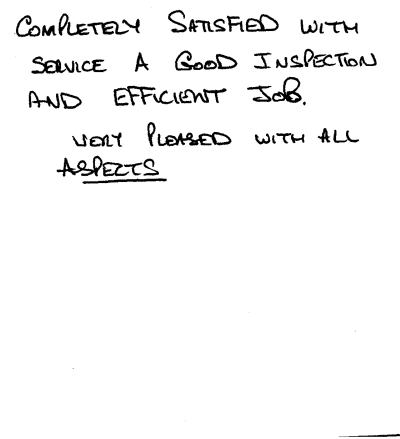 COMPLETELY SATISFIED WITH
SERVICE A GOOD INSPECTION
AND EFFICIENT JOB.
VERY PLEASED WITH ALL
ASPECTS